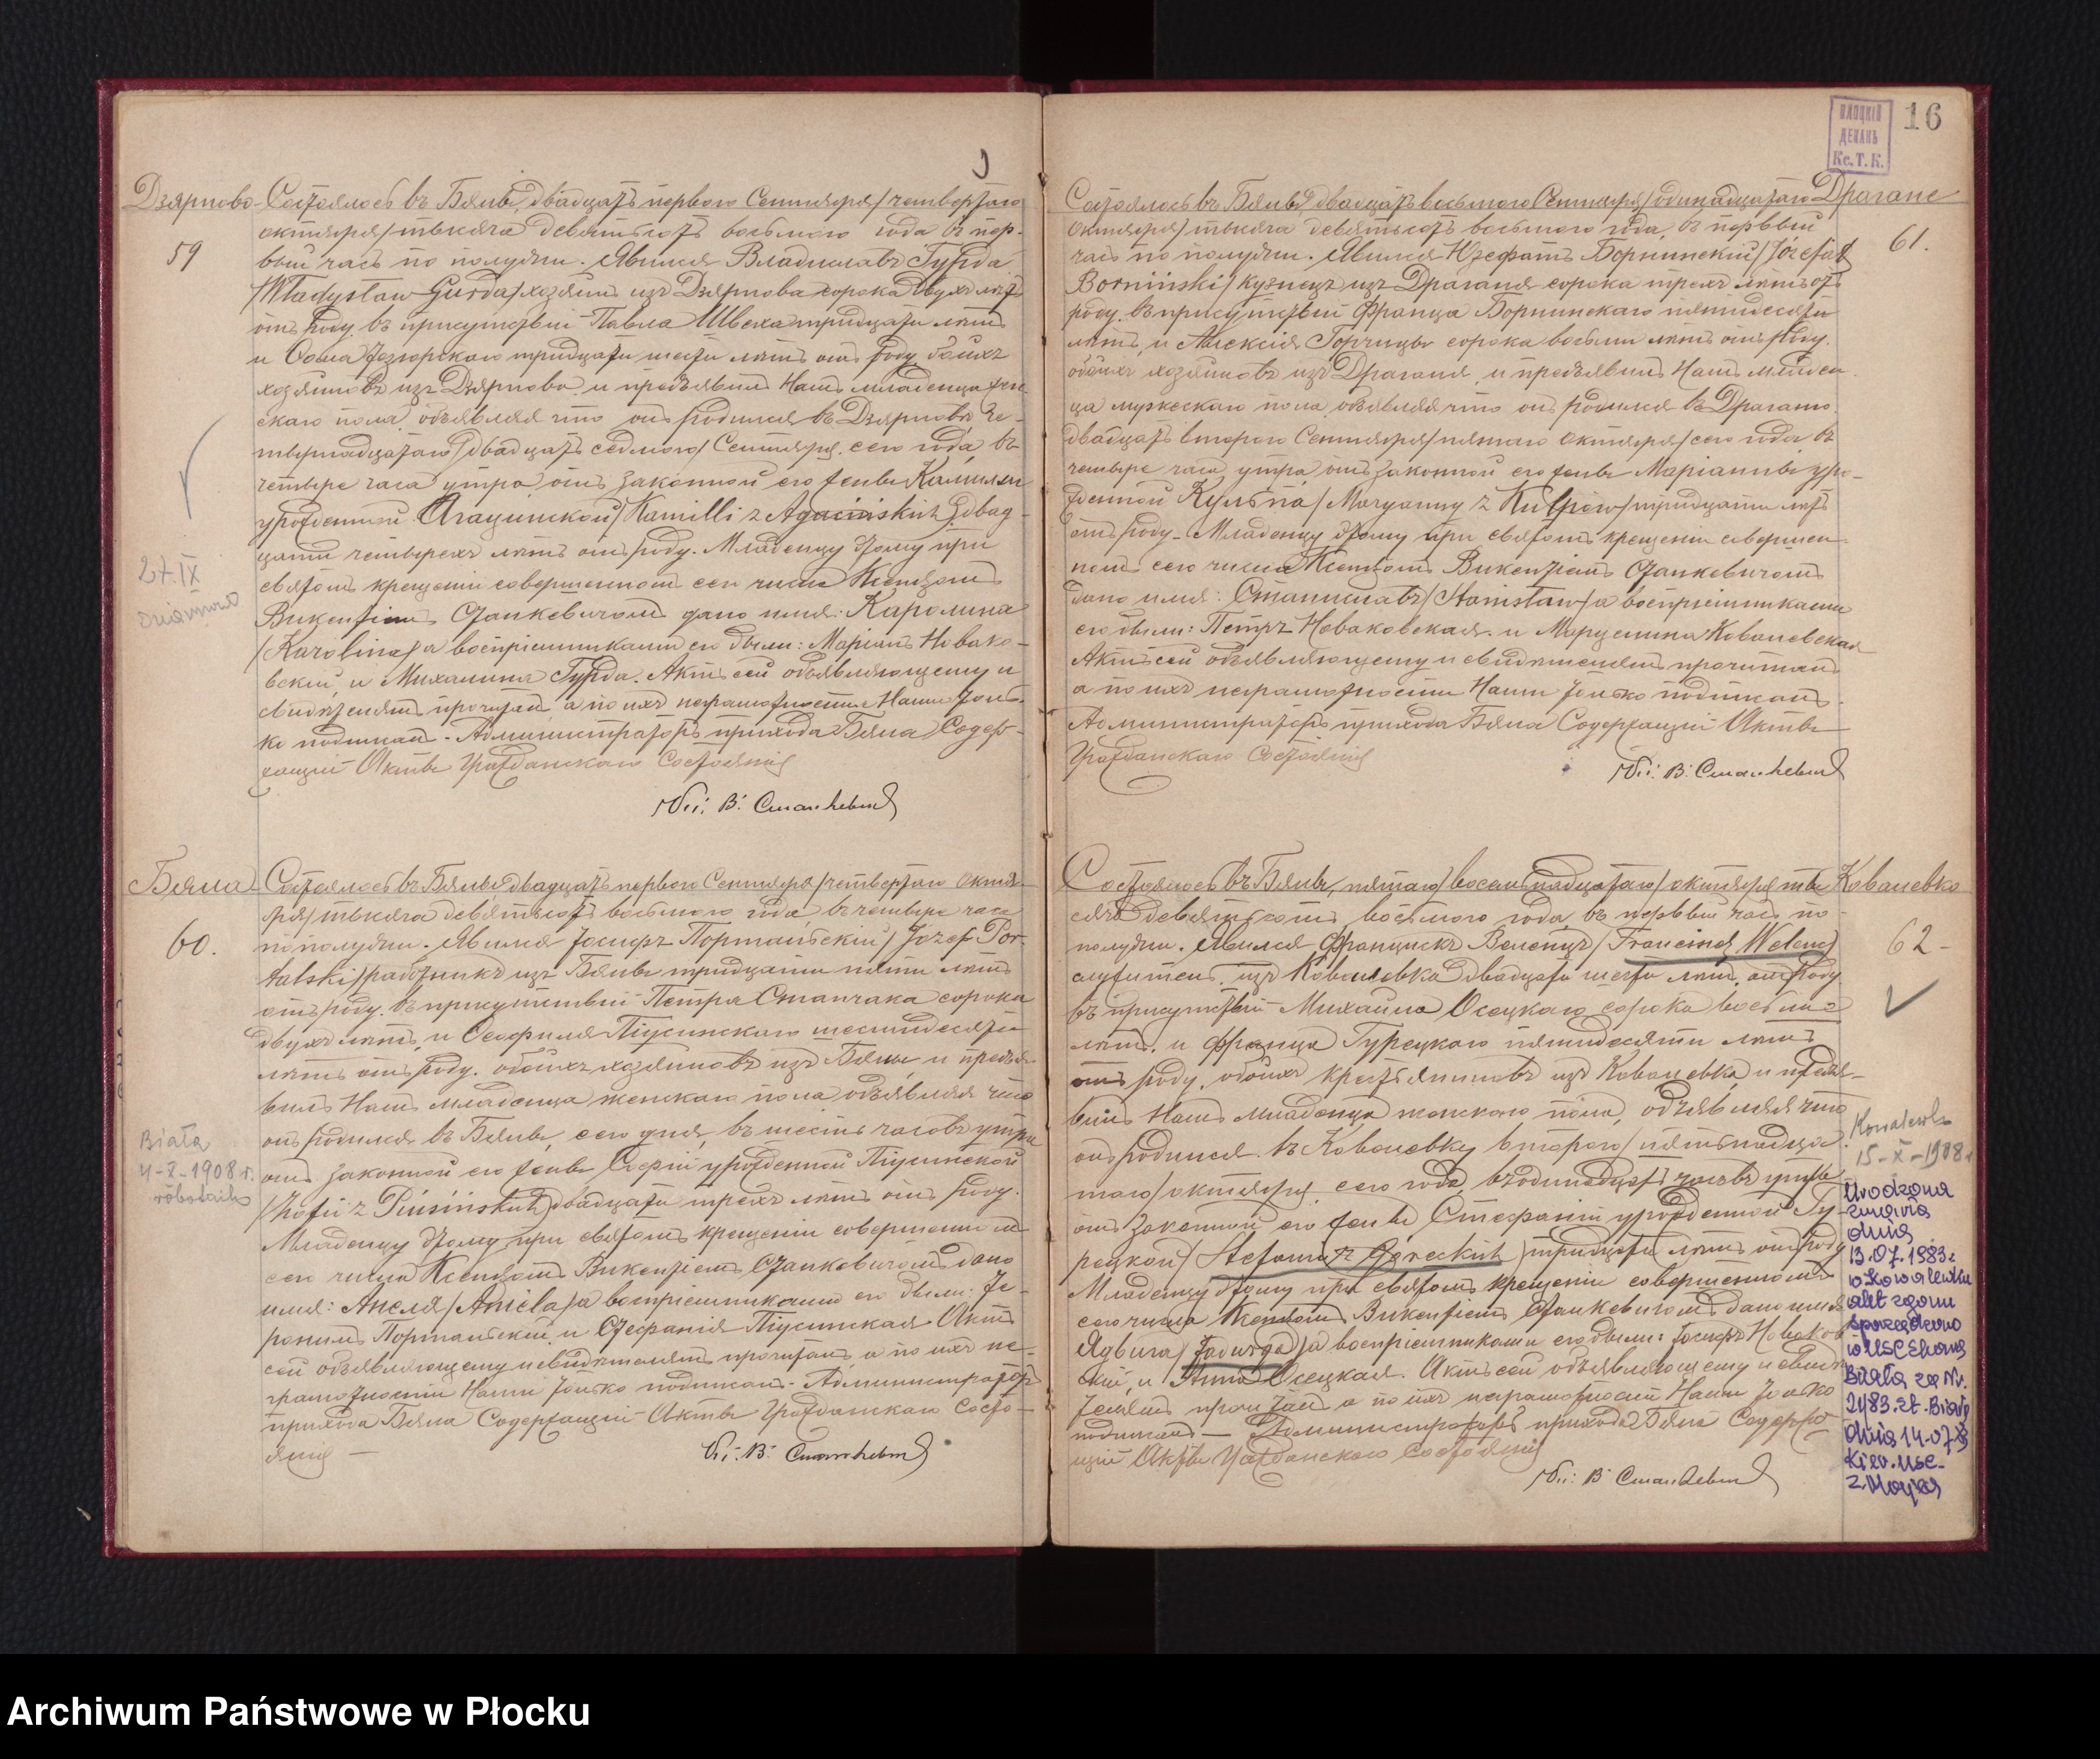 16
ПЛОЦКІЙ
ДЕКАНЬ
Кс. Т. К.
Дзярново
59
Состоялось въ Бялѣ, двадцать перваго Сентября/четвертаго
октября/тысяча девятьсотъ восьмого года въ пер-
вый часъ по полудни. Явился Владиславъ Гурда
/Władysław Gurda/хозяинъ изъ Дзярнова сорока двухъ лѣтъ
отъ роду въ присутствіи Павла Швеха тридцати лѣтъ
и тридцати шести лѣтъ отъ роду обоихъ
хозяиновъ изъ Дзярнова и предъявилъ Намъ младенца жен-
скаго пола, объявляя что онъ родился въ Дзярновѣ че-
тырнадцатаго/двадцать седмого/Сентября сего года въ
четыре часа утра отъ законной его жены Камиллы
урожденной Агацинской/Kamilli z Agacińskich/двад-
цати четырехъ лѣтъ отъ роду. Младенцу этому при
святомъ крещеніи совершенномъ сего числа Ксендзомъ
Викентіемъ Станкевичомъ дано имя: Каролина
/Karolina/а воспріемниками его были: Маріанъ Новако-
вскій, и Михалина Гурда. Актъ сей объявляющему и
свидѣтелямъ прочитанъ, а по ихъ неграмотности Нами толь-
ко подписанъ. Администраторъ прихода Бяла Содер-
жащій Акты Гражданскаго Состоянія
Кс: В: Станкевичъ
27.IX
Бяла
60.
Состоялось въ Бялѣ двадцать перваго Сентября/четвертаго октя-
бря/тысяча девятьсотъ восьмого года, въ четыре часа
пополудни. Явился Іосифъ Портальскій/Józef Por-
talski/работникъ изъ Бялы тридцати пяти лѣтъ
отъ роду. въ присутствіи Петра Станчака сорока
двухъ лѣтъ, и Теофиля Піусинскаго шестидесяти
лѣтъ отъ роду. обоихъ хозяиновъ изъ Бялы, и предъя-
вилъ Намъ младенца женскаго пола объявляя что
онъ родился въ Бялѣ, сего дня, въ шесть часовъ утра
отъ законной его жены Софіи урожденной Піусинской
/Zofii z Piusińskich/двадцати трехъ лѣтъ отъ роду.
Младенцу этому при святомъ крещеніи совершенномъ
сего числа Ксендзомъ Викентіемъ Станкевичомъ дано
имя: Анеля/Aniela/а воспріемниками его были: Іе-
ронимъ Портальскій, и Стефанія Піусинская. Актъ
сей объявляющему и свидѣтелямъ прочитанъ, а по ихъ не-
грамотности Нами только подписанъ. Администраторъ
прихода Бяла Содержащій Акты Гражданскаго Состо-
янія
Кс: В: Станкевичъ
Biała
4-X-1908 r.
Драгане
61.
Состоялось въ Бялѣ, двадцать восьмого Сентября/одинадцатаго
Октября/тысяча девятьсотъ восьмого года, въ первый
часъ по полудни. Явился Юзефатъ Борнинскій/Józefat
Borniński/кузнецъ изъ Драганя сорока трехъ лѣтъ отъ
роду въ присутствіи Франца Борнинскаго пятидесяти
лѣтъ, и Алексія Горчицы сорока восьми лѣтъ отъ роду.
обоихъ хозяиновъ изъ Драганя, и предъявилъ Намъ младен-
ца мужескаго пола, объявляя что онъ родился въ Драганю
двадцать второго Сентября/пятаго октября/сего года въ
четыре часа утра, отъ законной его жены Маріанны уро-
жденной Кульпа/Maryanny z Kulpów/тридцати лѣтъ
отъ роду. Младенцу этому при святомъ крещеніи совершен-
номъ сего числа Ксендзомъ Викентіемъ Станкевичомъ
дано имя: Станиславъ/Stanisław/а воспріемниками
его были: Петръ Новаковская и Марцелина Ковалевская
Актъ сей объявляющему и свидѣтелямъ прочитанъ
а по ихъ неграмотности Нами только подписанъ.
Администраторъ прихода Бяла Содержащій Акты
Гражданскаго Состоянія
Кс: В: Станкевичъ
Ковалевко
62-
Состоялось въ Бялѣ, пятаго/восемнадцатаго/октября ты-
сяча девятьсотъ восьмого года, въ первый часъ по-
полудни. Явился Францискъ Веленцъ/Franciszek Welenc/
служитель, изъ Ковалевка двадцати шести лѣтъ отъ роду
въ присутствіи Михаила Осецкаго сорока восьми
лѣтъ, и Франца Гурецкаго пятидесяти лѣтъ
отъ роду, обоихъ крестьяниновъ изъ Ковалевка, и предъя-
вилъ Намъ младенца женскаго пола, объявляя что
онъ родился въ Ковалевку второго/пятьнадца-
таго/октября, сего года, въ одинадцать часовъ утра
отъ законной его жены Стефаніи урожденной Гу-
рецкой/Stefanii z Góreckich/тридцати лѣтъ отъ роду
Младенцу этому при святомъ крещеніи совершенномъ
сего числа Ксендзомъ Викентіемъ Станкевичомъ дано имя
Ядвига/Jadwiga/а воспріемниками его были: Іосифъ Новаков-
скій, и Анна Осецкая. Актъ сей объявляющему и свидѣ-
телямъ прочитанъ а по ихъ неграмотности Нами только
подписанъ — Администраторъ прихода Бяла Содержа-
щій Акты Гражданскаго Состоянія
Кс: В: Станкевичъ
Kowalewko
15-X-1908 r
Urodzona
zmarła
dnia
13.07.1983 r
w Kowalewku
akt zgonu
sporządzono
w USC Stara
Biała za Nr.
dnia 14-07-83
Kier. USC
Archiwum Państwowe w Płocku